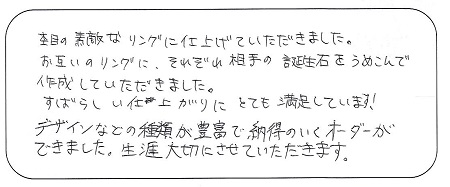 素敵なリングに仕上げていただきました。
お互いのリングに、それぞれ相手の誕生石をうめこんで
作成していただきました。
すばらしい仕上がりにとても満足しています!
デザインなどの種類が豊富で納得のいくオーダーが
できました。生涯大切にさせていただきます。